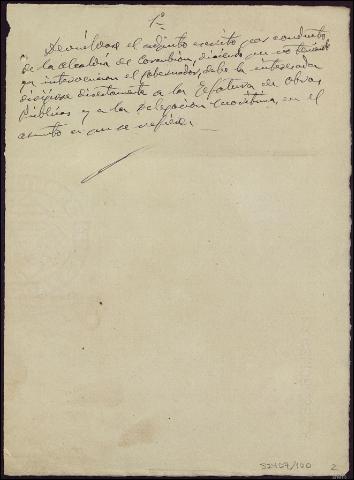 Devuélvase el adjunto escrito por conducto
de la alcaldía de Corcubión, diciendo que no teniendo
ya intervención el gobernador, debe la interesada
dirigirse directamente a la Jefatura de Obras
Públicas y a la Delegación Marítima, en el
asunto a que se refiere.
32407/100
2